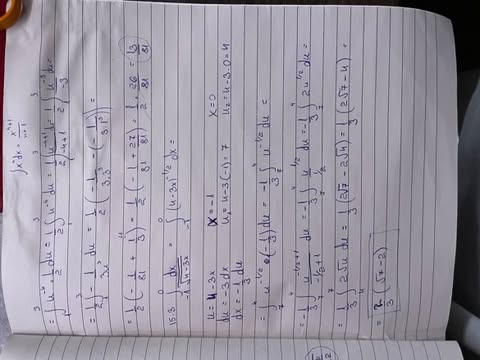 ∫xⁿdx = xⁿ⁺¹/n+1
= ∫₁³ u⁻⁴ · 1/2 du = 1/2 ∫₁³ u⁻⁴ du = 1/2 ∫₁³ u⁻⁴⁺¹/-4+1 du = 1/2 ∫₁³ u⁻³/-3 du =
= 1/2 ∫₁³ - 1/3u³ du = 1/2 (- 1/3·3³ - (- 1/3·1³)) =
= 1/2 (- 1/81 + 1/3) = 1/2 (- 1/81 + 27/81) = 1/2 · 26/81 = 13/81
15.3 ∫₋₁⁰ dx/√(4-3x) = ∫₋₁⁰ (4-3x)^(-1/2) dx =
u = 4-3x x=-1 x=0
du = -3dx u₁ = 4-3(-1) = 7 u₂ = 4-3·0 = 4
dx = -1/3 du
= ∫₇⁴ u^(-1/2) · (-1/3) du = -1/3 ∫₇⁴ u^(-1/2) du =
= -1/3 ∫₇⁴ u^(-1/2+1)/(-1/2+1) du = -1/3 ∫₇⁴ u^(1/2)/(1/2) du = -1/3 ∫₇⁴ 2u^(1/2) du =
= 1/3 ∫₄⁷ 2√u du = 1/3 (2√7 - 2√4) = 1/3 (2√7 - 4) =
= 2/3 (√7 - 2)